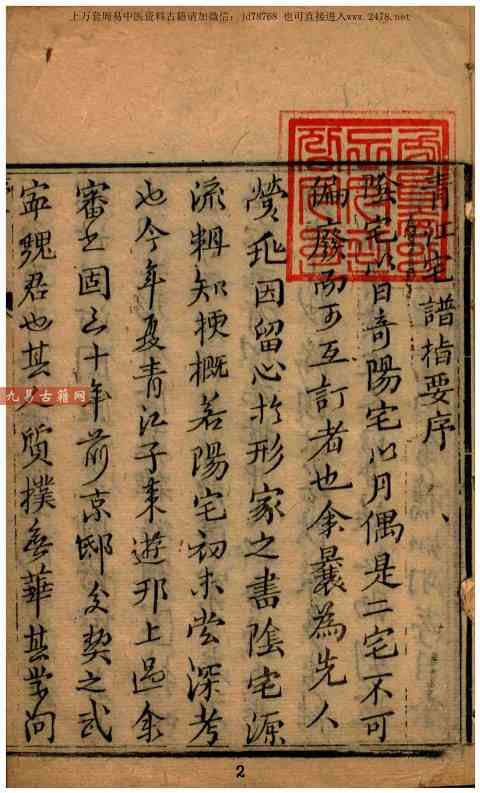 上万套周易中医资料古籍请加微信：jd78768 也可直接进入www.2478.net
青江宅譜指要序
陰宅以日奇陽宅以月偶是二宅不可
偏廢而可互訂者也余曩為先人
塋兆因留心於形家之書陰宅源
流輒知梗概若陽宅初未尝深考
也今年夏青江子来遊邗上過余
審之固三十年前京邸交契之武
寍魏君也其人質樸無華其學问
九易古籍网
2